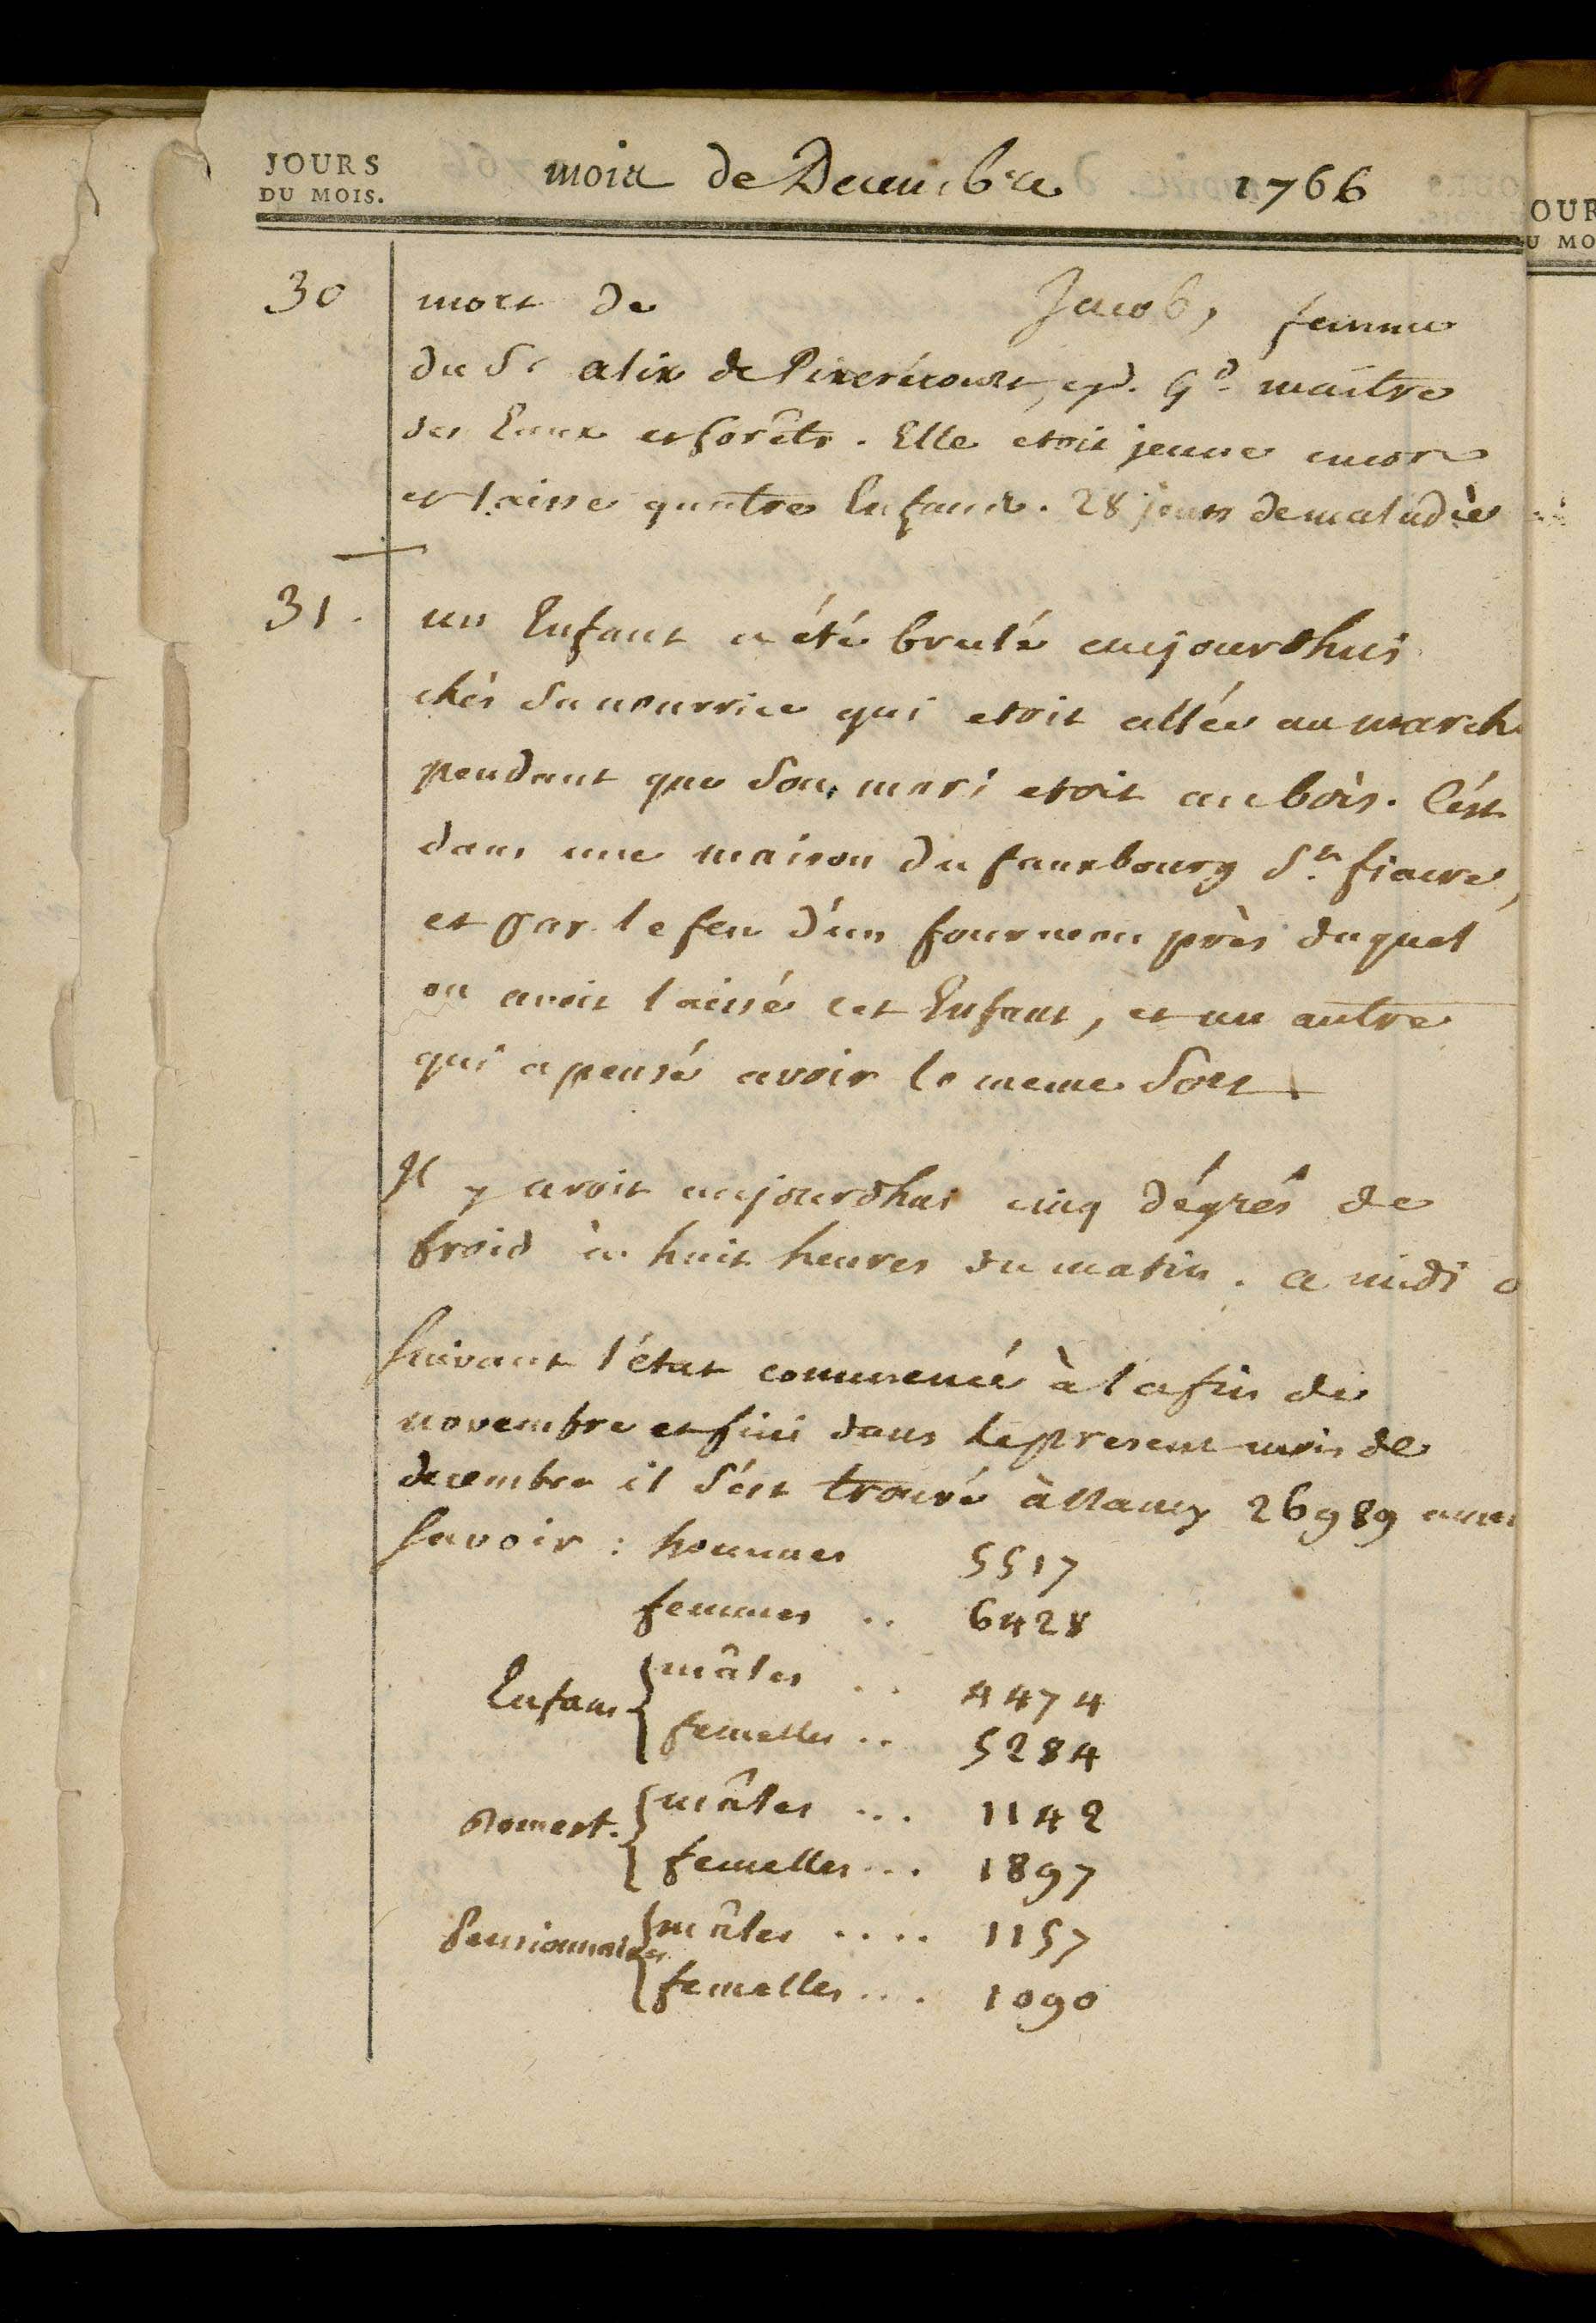 JOURS
DU MOIS.
mois de Decembre 1766
30 mort de Jacob, femme
du Sr alix de Pixerécourt, cy d. Gd. maître
des Eaux et forêts. Elle etoit jeune encore
et laisse quatre Enfans. 28 jours de maladie
31. un Enfant a été brulé aujourdhui
chés sa nourrice qui etoit allée au march
pendant que Son mari etoit au bois. C'est
dans une maison du fauxbourg St. fiacre,
et par le feu d'un fourneau près duquel
on avoit laissé cet Enfant, et un autre
qui a pensé avoir le meme Sort.
Il y avoit aujourdhui cinq dégrés de
froid à huit heures du matin. a midi o
Suivant l'état commencé à la fin de
novembre et fini dans le present mois de
decembre il s'est trouvé à Nancy 26989 ames
Savoir : hommes 5517
femmes .. 6428
Enfans { mâles .. 4474
femelles .. 5284
Domest. { mâles ... 1142
femelles ... 1897
Pensionnaires { mâles .... 1157
femelles .... 1090
OUR
U MO